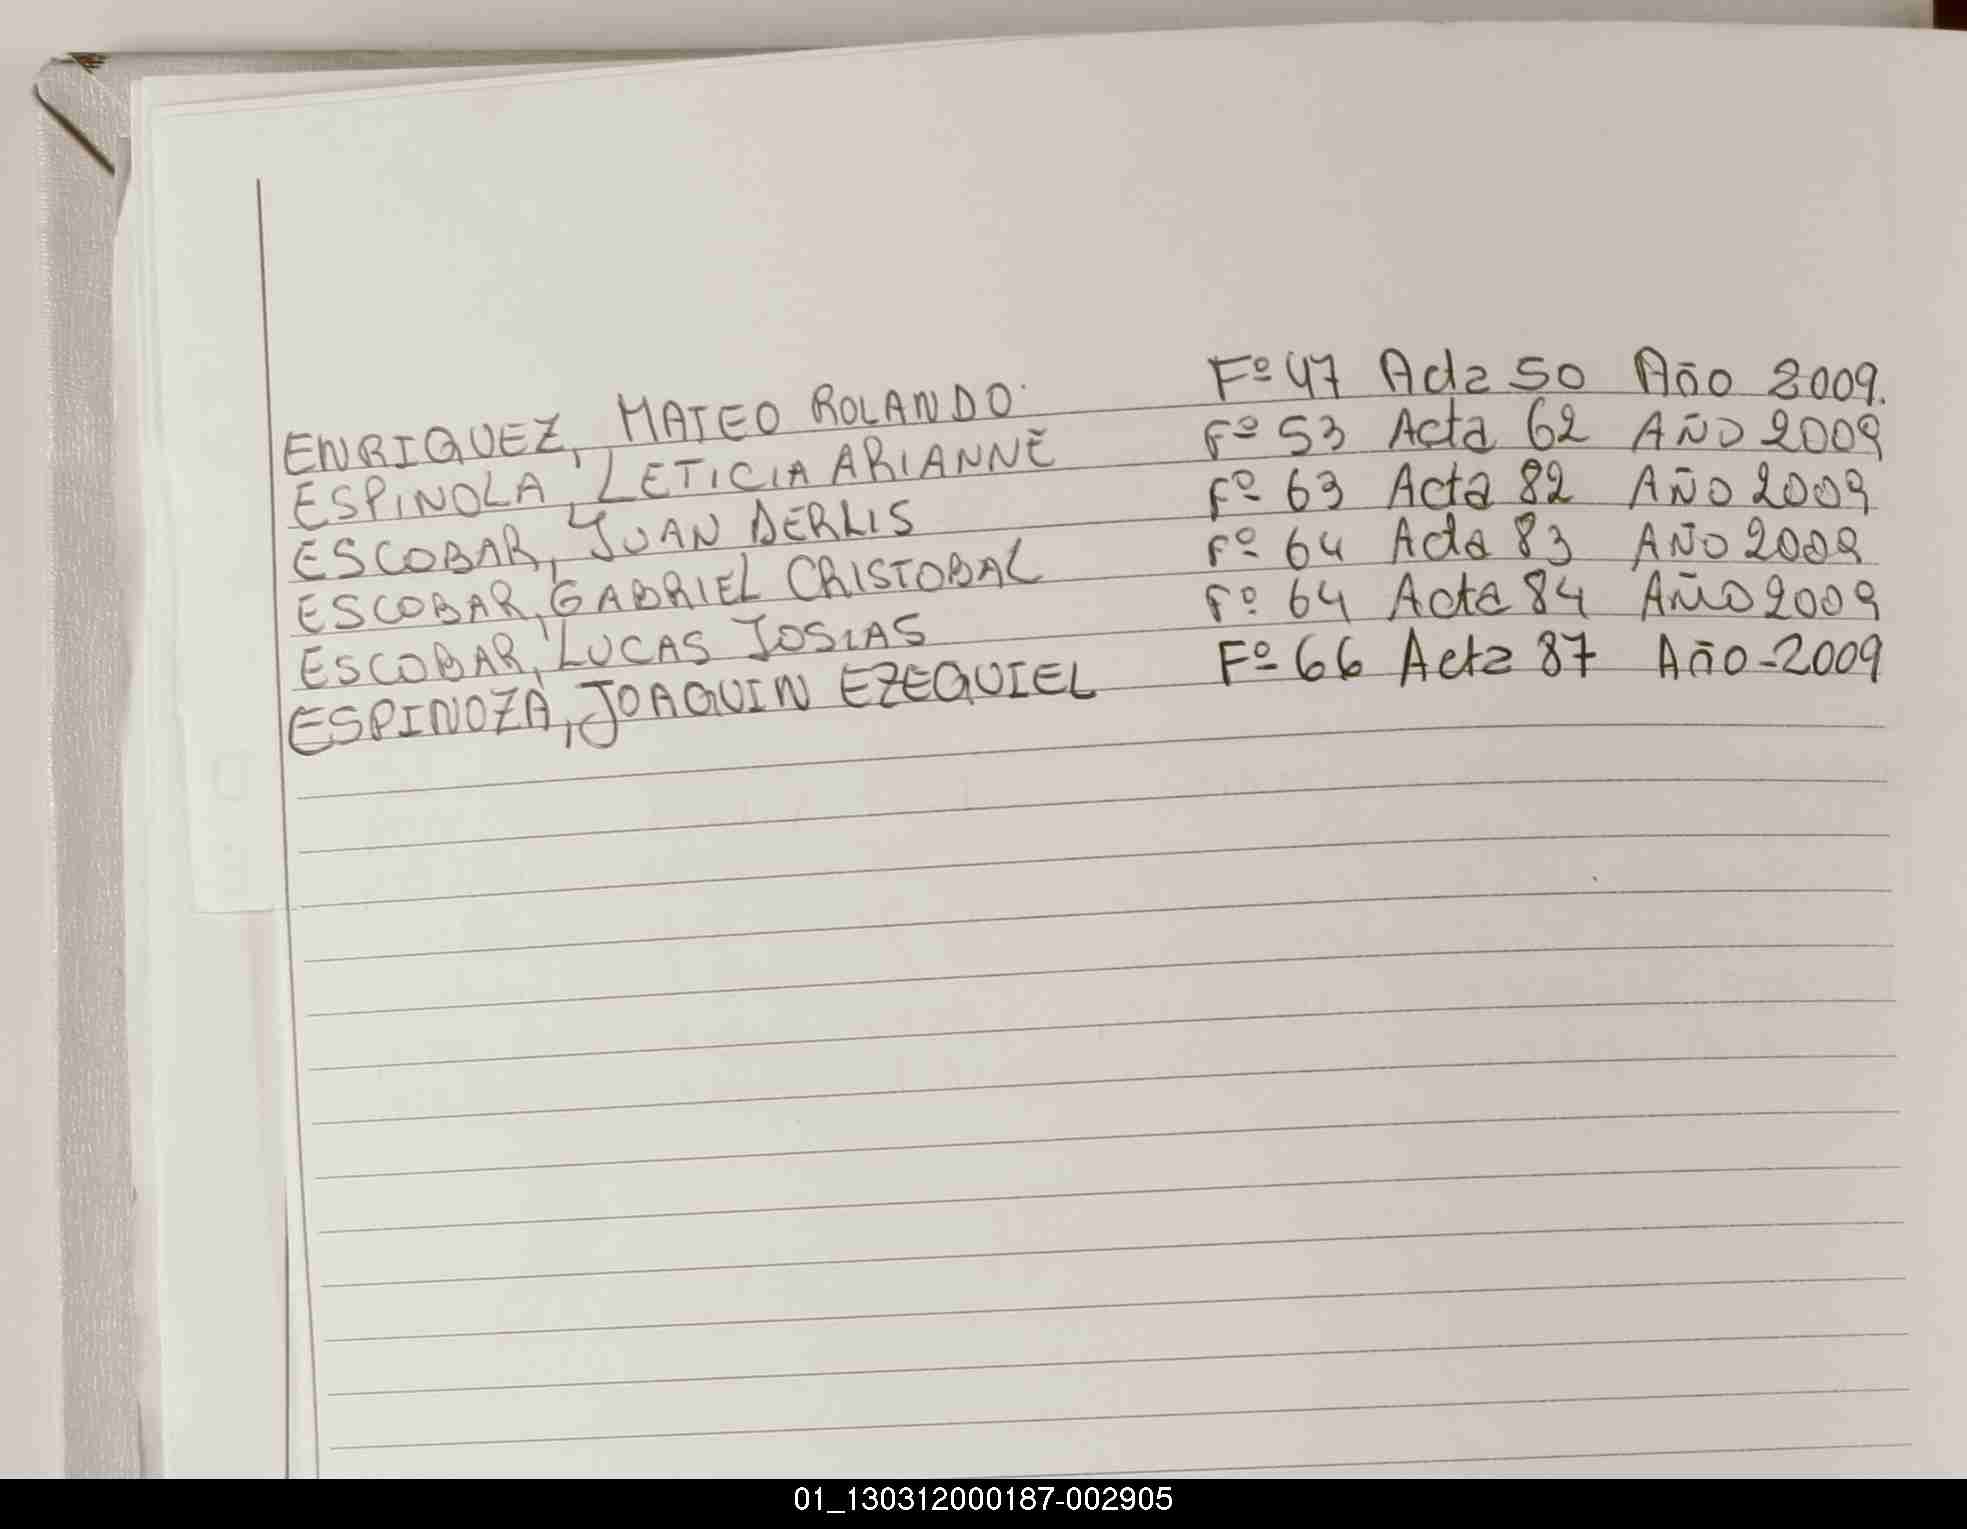 ENRIQUEZ, MATEO ROLANDO Fº 47 Acta 50 Año 2009.
ESPINOLA, LETICIA ARIANNE Fº 53 Acta 62 AÑO 2009
ESCOBAR, JUAN DERLIS Fº 63 Acta 82 AÑO 2009
ESCOBAR, GABRIEL CRISTOBAL Fº 64 Acta 83 AÑO 2009
ESCOBAR, LUCAS JOSIAS Fº 64 Acta 84 AÑO 2009
ESPINOZA, JOAQUIN EZEQUIEL Fº 66 Acta 87 Año-2009
01_130312000187-002905